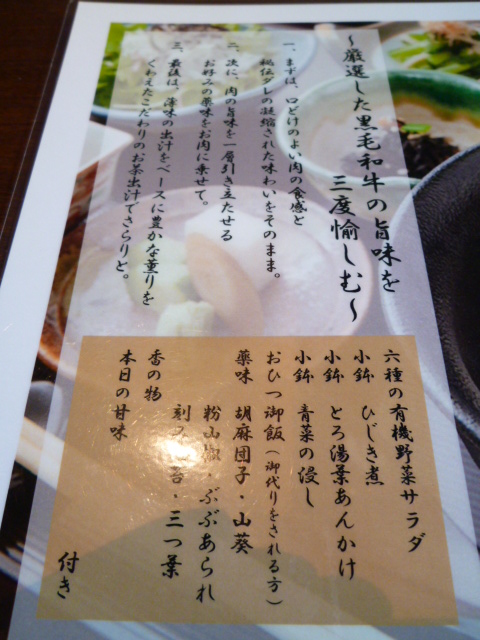 ～厳選した黒毛和牛の旨味を
三度愉しむ～
一、まずは、口どけのよい肉の食感と
秘伝タレの凝縮された味わいをそのまま。
二、次に、肉の旨味を一層引き立たせる
お好みの薬味をお肉に乗せて。
三、最後は、薄味の出汁をベースに豊かな薫りを
くわえたこだわりのお茶出汁でさらりと。
六種の有機野菜サラダ
小鉢 ひじき煮
小鉢 とろ湯葉あんかけ
小鉢 青菜の浸し
おひつ御飯（御代りをされる方）
薬味 胡麻団子・山葵
粉山椒・ぶぶあられ
刻み・三つ葉
香の物
本日の甘味
付き